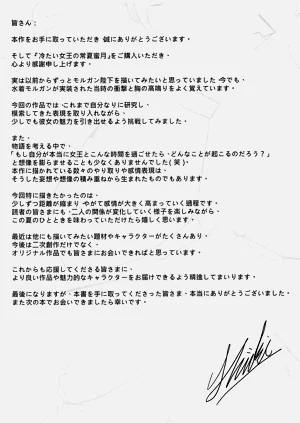 皆さん：
本作をお手に取っていただき 誠にありがとうございます。
そして『冷たい女王の常夏蜜月』をご購入いただき、
心より感謝申し上げます。
実は以前からずっとモルガン陛下を描いてみたいと思っていました 今でも、
水着モルガンが実装された当時の衝撃と胸の高鳴りをよく覚えています。
今回の作品では これまで自分なりに研究し、
模索してきた表現を取り入れながら、
少しでも彼女の魅力を引き出せるよう挑戦してみました。
また、
物語を考える中で、
「もし自分が本当に女王とこんな時間を過ごせたら、どんなことが起こるのだろう？」
と想像を膨らませることも少なくありませんでした(笑)。
本作に描かれている数々のやり取りや感情表現は、
そうした妄想や想像の積み重ねから生まれたものでもあります。
今回特に描きたかったのは、
少しずつ距離が縮まり やがて感情が大きく高まっていく過程です。
読者の皆さまにも、二人の関係が変化していく様子を楽しみながら、
この夏のひとときを味わっていただけたら嬉しく思います。
最近は他にも描いてみたい題材やキャラクターがたくさんあり、
今後は二次創作だけでなく、
オリジナル作品でも皆さまにお会いできればと思っています。
これからも応援してくださる皆さまに、
より良い作品や魅力的なキャラクターをお届けできるよう精進してまいります。
最後になりますが、本書を手に取ってくださった皆さま、本当にありがとうございました。
また次の本でお会いできましたら幸いです。